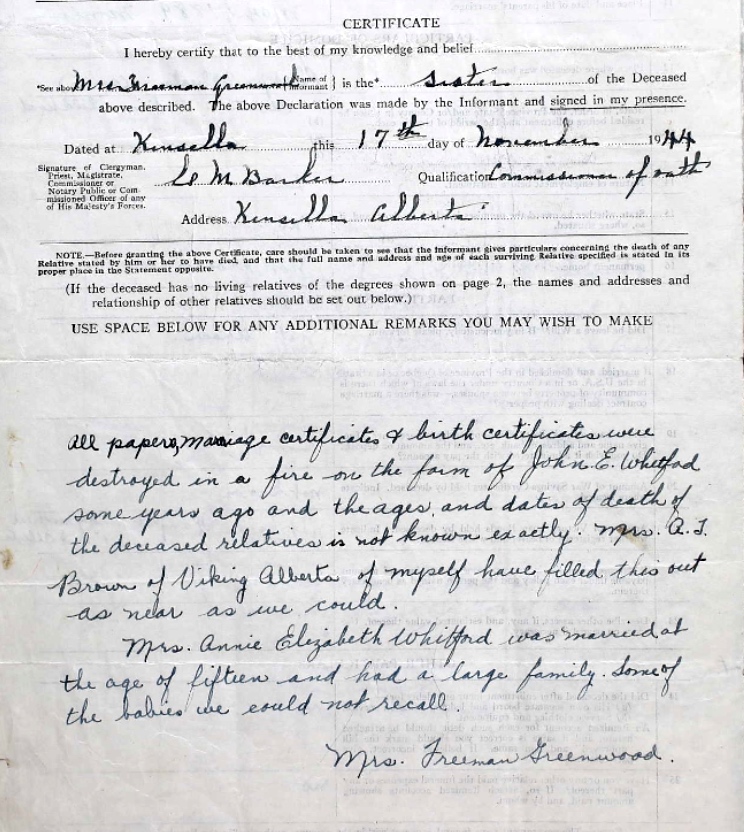 CERTIFICATE
I hereby certify that to the best of my knowledge and belief
*See above Mrs. Freeman Greenwood { Name of Informant } is the* Sister of the Deceased
above described. The above Declaration was made by the Informant and signed in my presence.
Dated at Kinsella this 17th day of November 1944
Signature of Clergyman,
Priest, Magistrate,
Commissioner or
Notary Public or Com-
missioned Officer of any
of His Majesty's Forces.
M Barker Qualification Commissioner of oath
Address Kinsella Alberta
NOTE.—Before granting the above Certificate, care should be taken to see that the Informant gives particulars concerning the death of any
Relative stated by him or her to have died, and that the full name and address and age of each surviving Relative specified is stated in its
proper place in the Statement opposite.
(If the deceased has no living relatives of the degrees shown on page 2, the names and addresses and
relationship of other relatives should be set out below.)
USE SPACE BELOW FOR ANY ADDITIONAL REMARKS YOU MAY WISH TO MAKE
All papers, marriage certificates & birth certificates were
destroyed in a fire on the farm of John E. Whitford
some years ago and the ages and dates of death of
the deceased relatives is not known exactly. Mrs. A.J.
Brown of Viking Alberta of myself have filled this out
as near as we could.
Mrs. Annie Elizabeth Whitford was married at
the age of fifteen and had a large family. Some of
the babies we could not recall.
Mrs. Freeman Greenwood.